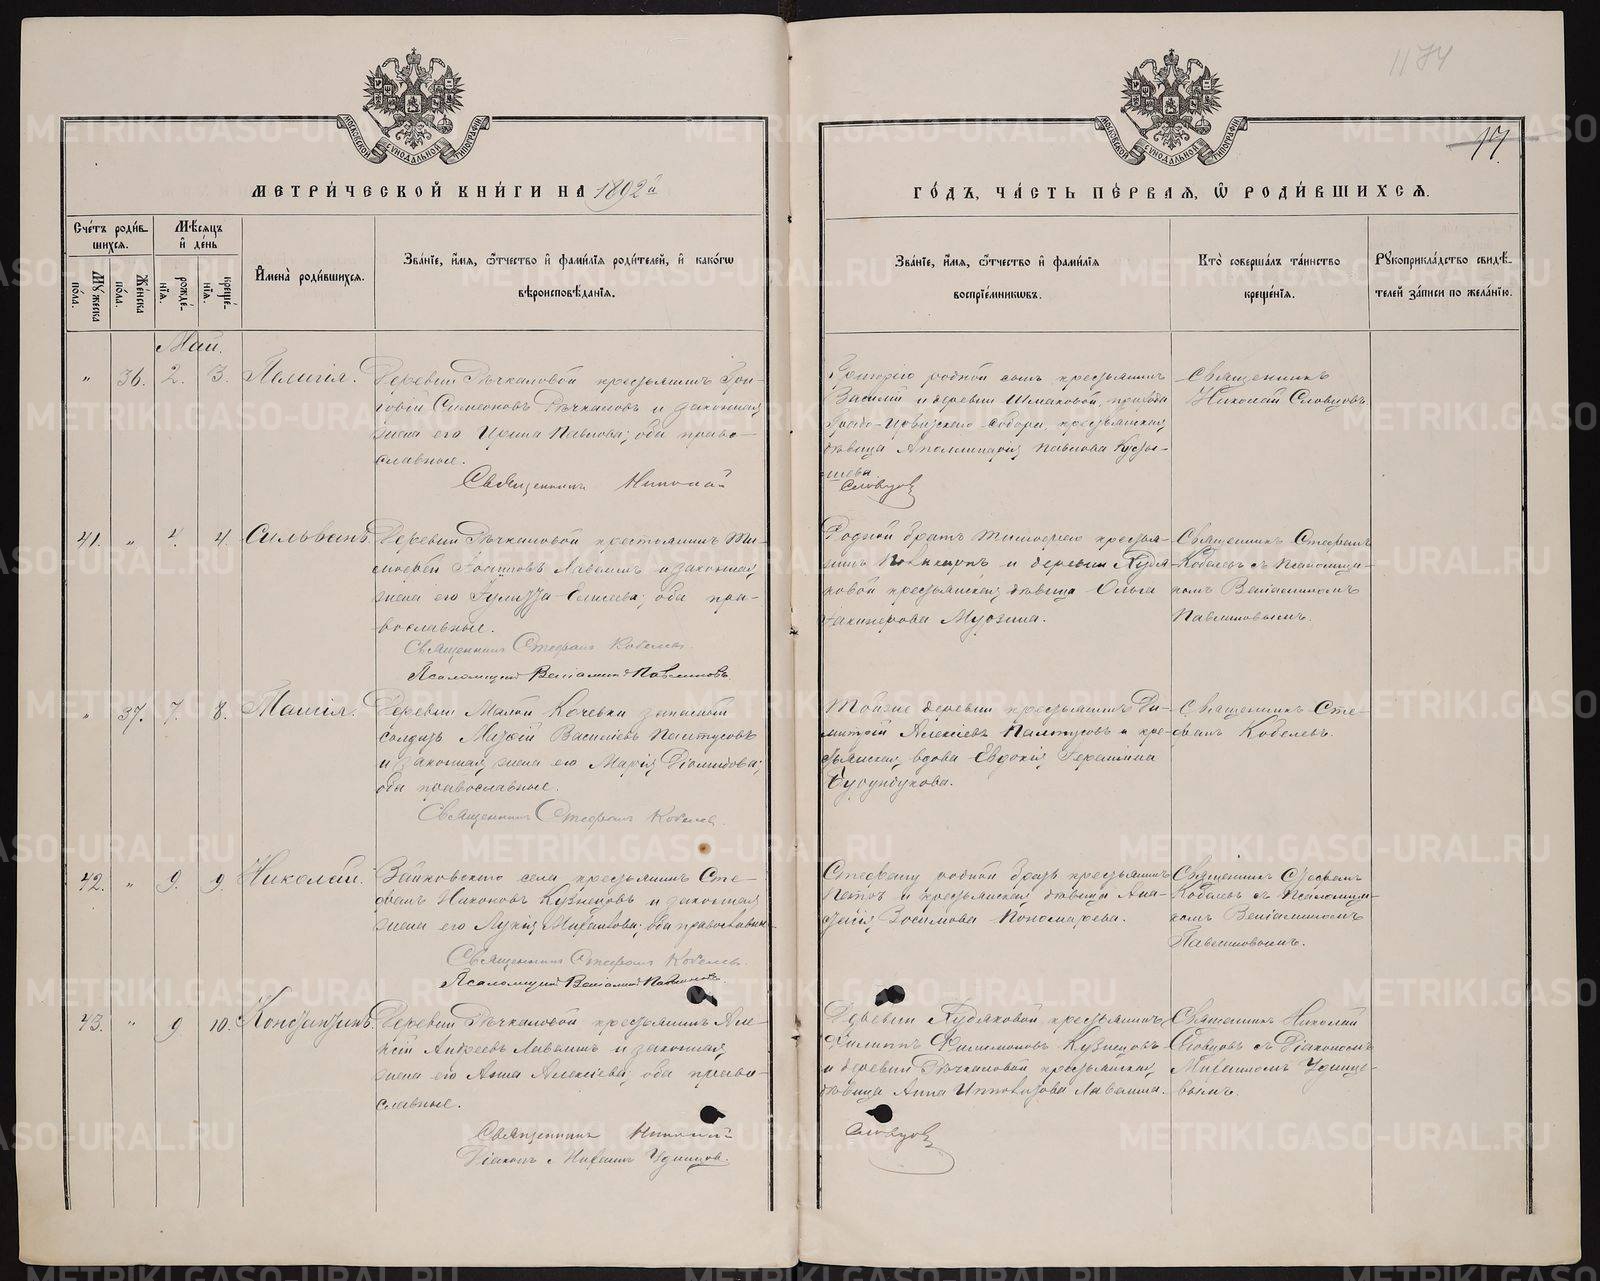 1174
17.
МОСКОВСКОЙ СѴНОДАЛЬНОЙ ТИПОГРАФІИ
МОСКОВСКОЙ СѴНОДАЛЬНОЙ ТИПОГРАФІИ
МЕТРИ́ЧЕСКОЙ КНИ́ГИ НА 1892й
ГО́ДЪ, ЧА́СТЬ ПЕ́РВАЯ, Ѡ РОДИ́ВШИХСѦ.
Сче́тъ роди́в-
шихсѧ.
Мꙋжеска по́ла.
Же́нска по́ла.
Мѣ́сяцъ
и҆ де́нь
рожде́-
нїѧ.
креще́-
нїѧ.
И҆мена̀ роди́вшихсѧ.
Зва́нїе, и҆́мѧ, ѻ҆́тчество и҆ фами́лїѧ роди́телей, и҆ како́гѡ
вѣроисповѣ́данїѧ.
Зва́нїе, и҆́мѧ, ѻ҆́тчество и҆ фами́лїѧ
воспрїе́мникѡвъ.
Кто̀ соверша́лъ та́инство
креще́нїѧ.
Рꙋкоприкла́дство свидѣ́-
телей за́писи по жела́нїю.
Май.
" 36. 2. 3. Пелагія. Деревни Рѣчкаловой крестьянинъ Гри-
горій Симеоновъ Рѣчкаловъ и законная
жена его Ирина Павлова; оба право-
славные.
Священникъ Николай
Григорію родной сынъ крестьянинъ
Василій и деревни Шмаковой, прихода
Градо-Ирбитскаго собора, крестьянская
дѣвица Аполлинарія Павлова
Словцов
Священникъ
Николай Словцовъ.
41. " 4. 4. Сильванъ. Деревни Рѣчкаловой крестьянинъ Ти-
моѳей Лавелинъ и законная
жена его Елисеева; оба пра-
вославные.
Священникъ Стефанъ Кобелевъ.
Псаломщикъ Веніаминъ Павлиновъ.
Родной братъ Тимоѳею крестья-
нинъ Поликарпъ и деревни Кудя-
ковой крестьянская дѣвица Ольга
Мурзина.
Священникъ Стефанъ
Кобелевъ съ Псаломщи-
комъ Веніаминомъ
Павлиновымъ.
" 37. 7. 8. Таисія. Деревни Малой Кочевки запасный
солдатъ Василіевъ Палтусовъ
и законная жена его Марія Діомидова;
оба православные.
Священникъ Стефанъ Кобелев.
Той же деревни крестьянинъ Ди-
митрій Алексіевъ Палтусовъ и кре-
стьянская вдова Евдокія Герасимова
Бурундукова.
Священникъ Сте-
фанъ Кобелевъ.
42. " 9. 9. Николай. Зайковскаго села крестьянинъ Сте-
фанъ Никоновъ Кузнецовъ и законная
жена его Лукія Михаилова; оба православные
Священникъ Стефанъ Кобелев.
Псаломщикъ Веніаминъ Павлиновъ
Стефану родной братъ крестьянинъ
Петръ и крестьянская дѣвица Ана-
стасія Зосимова Пономарева.
Священникъ Стефанъ
Кобелевъ съ Псаломщи-
комъ Веніаминомъ
Павлиновымъ.
43. " 9 10. Константинъ. Деревни Рѣчкаловой крестьянинъ Але-
ксій Андреевъ Лавелинъ и законная
жена его Анна Алексіева; оба право-
славные.
Священникъ Николай
Діаконъ Михаилъ Удинцов.
Деревни Кудяковой крестьянинъ
Филиппъ Филимоновъ Кузнецовъ
и деревни Рѣчкаловой крестьянская
дѣвица Анна Ипполитова Лавелина.
Словцов
Священникъ Николай
Словцовъ съ Діакономъ
Михаиломъ Удинце-
вымъ.
METRIKI.GASO-URAL.RU